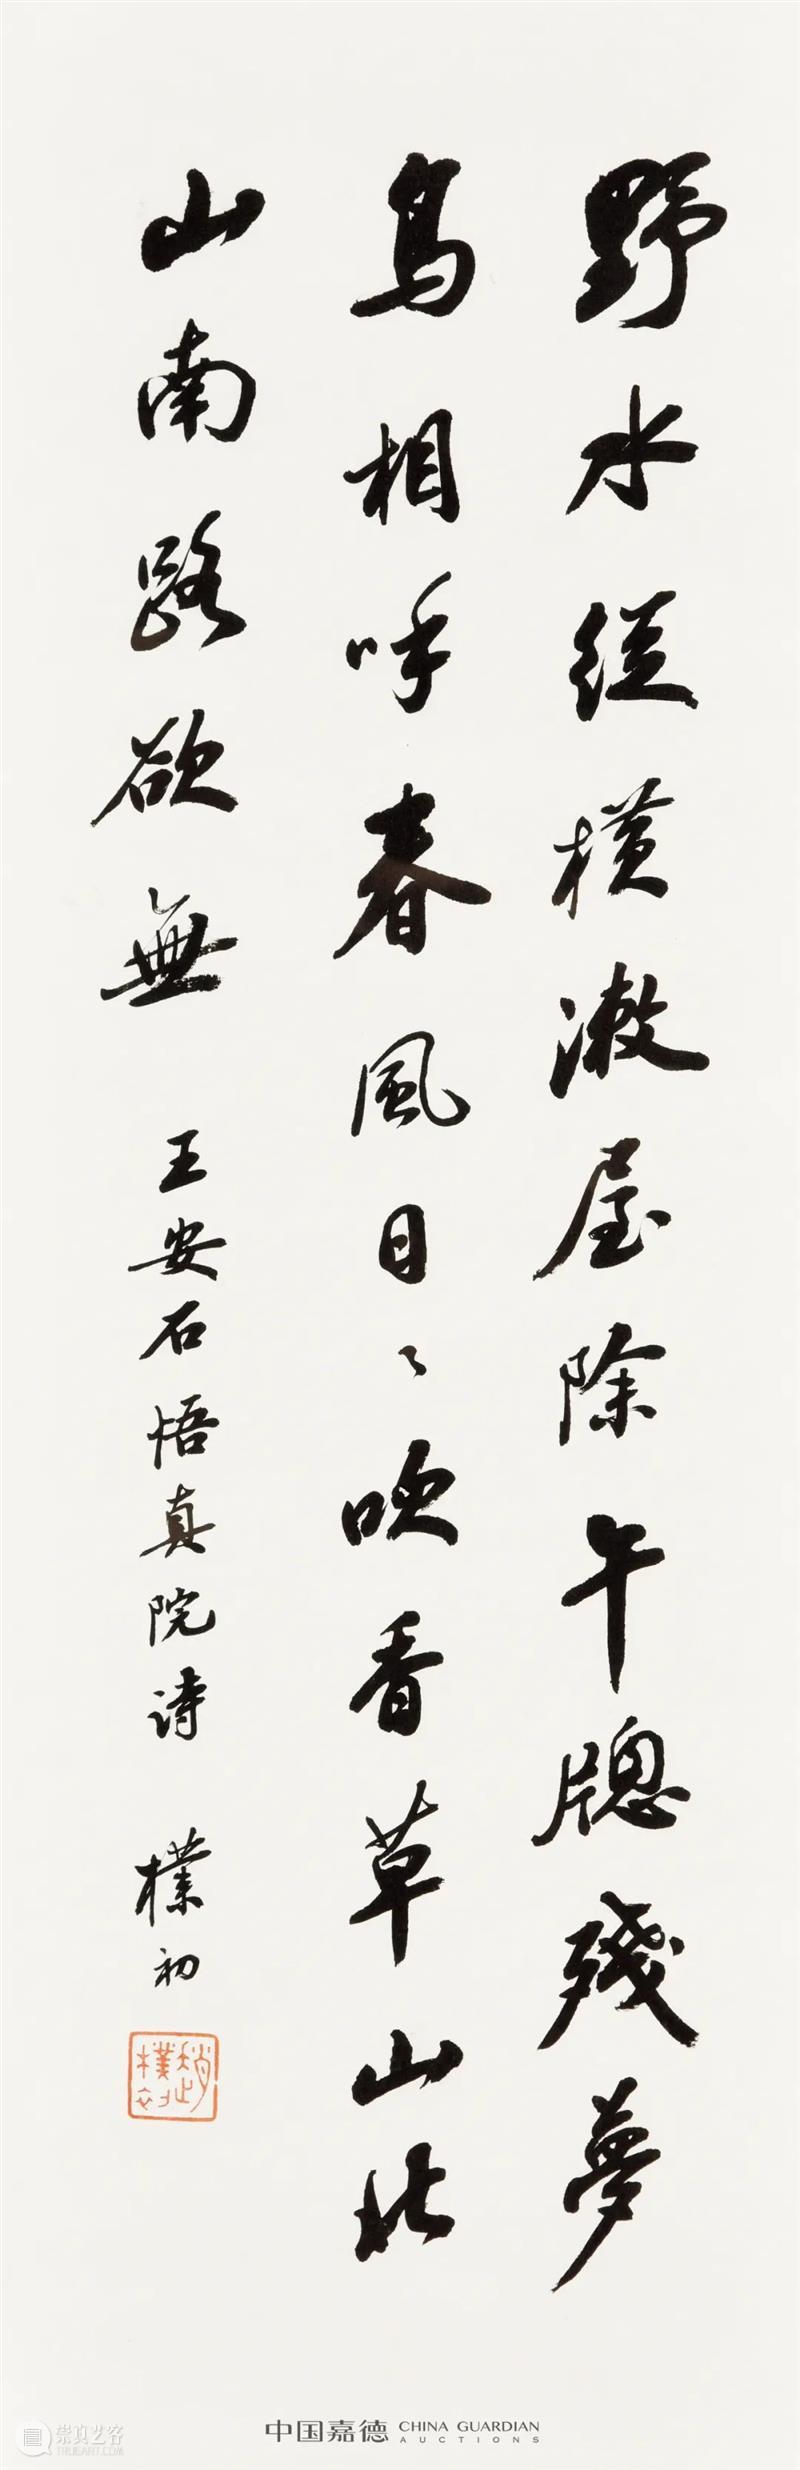 野水縱橫漱屋除午牕殘夢
鳥相呼春風日〻吹香草山北
山南路欲無
王安石悟真院诗 樸初
趙樸初
中国嘉德 CHINA GUARDIAN
AUCTIONS
崇真艺客
TRUEART.COM